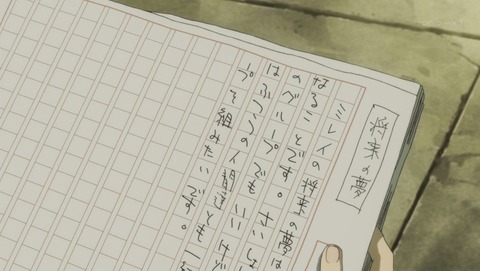 将来の夢
ミレイの将来の夢は
なることです。
のグループでもさいし
はふつうの人間
プを組みたいです。